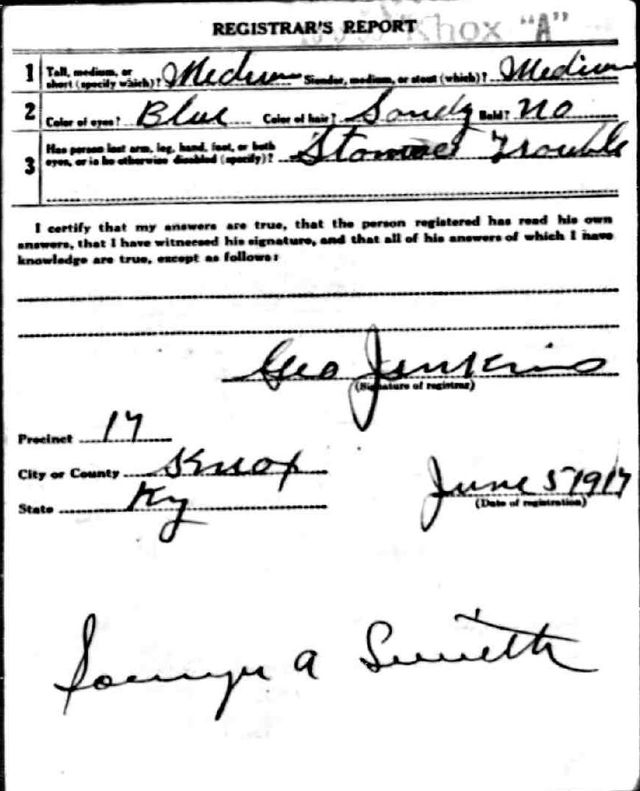 REGISTRAR'S REPORT
Knox "A"
1 Tall, medium, or short (specify which)? Medium Slender, medium, or stout (which)? Medium
2 Color of eyes? Blue Color of hair? Sandy Bald? no
3 Has person lost arm, leg, hand, foot, or both
eyes, or is he otherwise disabled (specify)? Trouble
I certify that my answers are true, that the person registered has read his own
answers, that I have witnessed his signature, and that all of his answers of which I have
knowledge are true, except as follows:
Geo Jenkins
(Signature of registrar)
Precinct 17
City or County Knox
State Ky
June 5 1917
(Date of registration)
a Smith